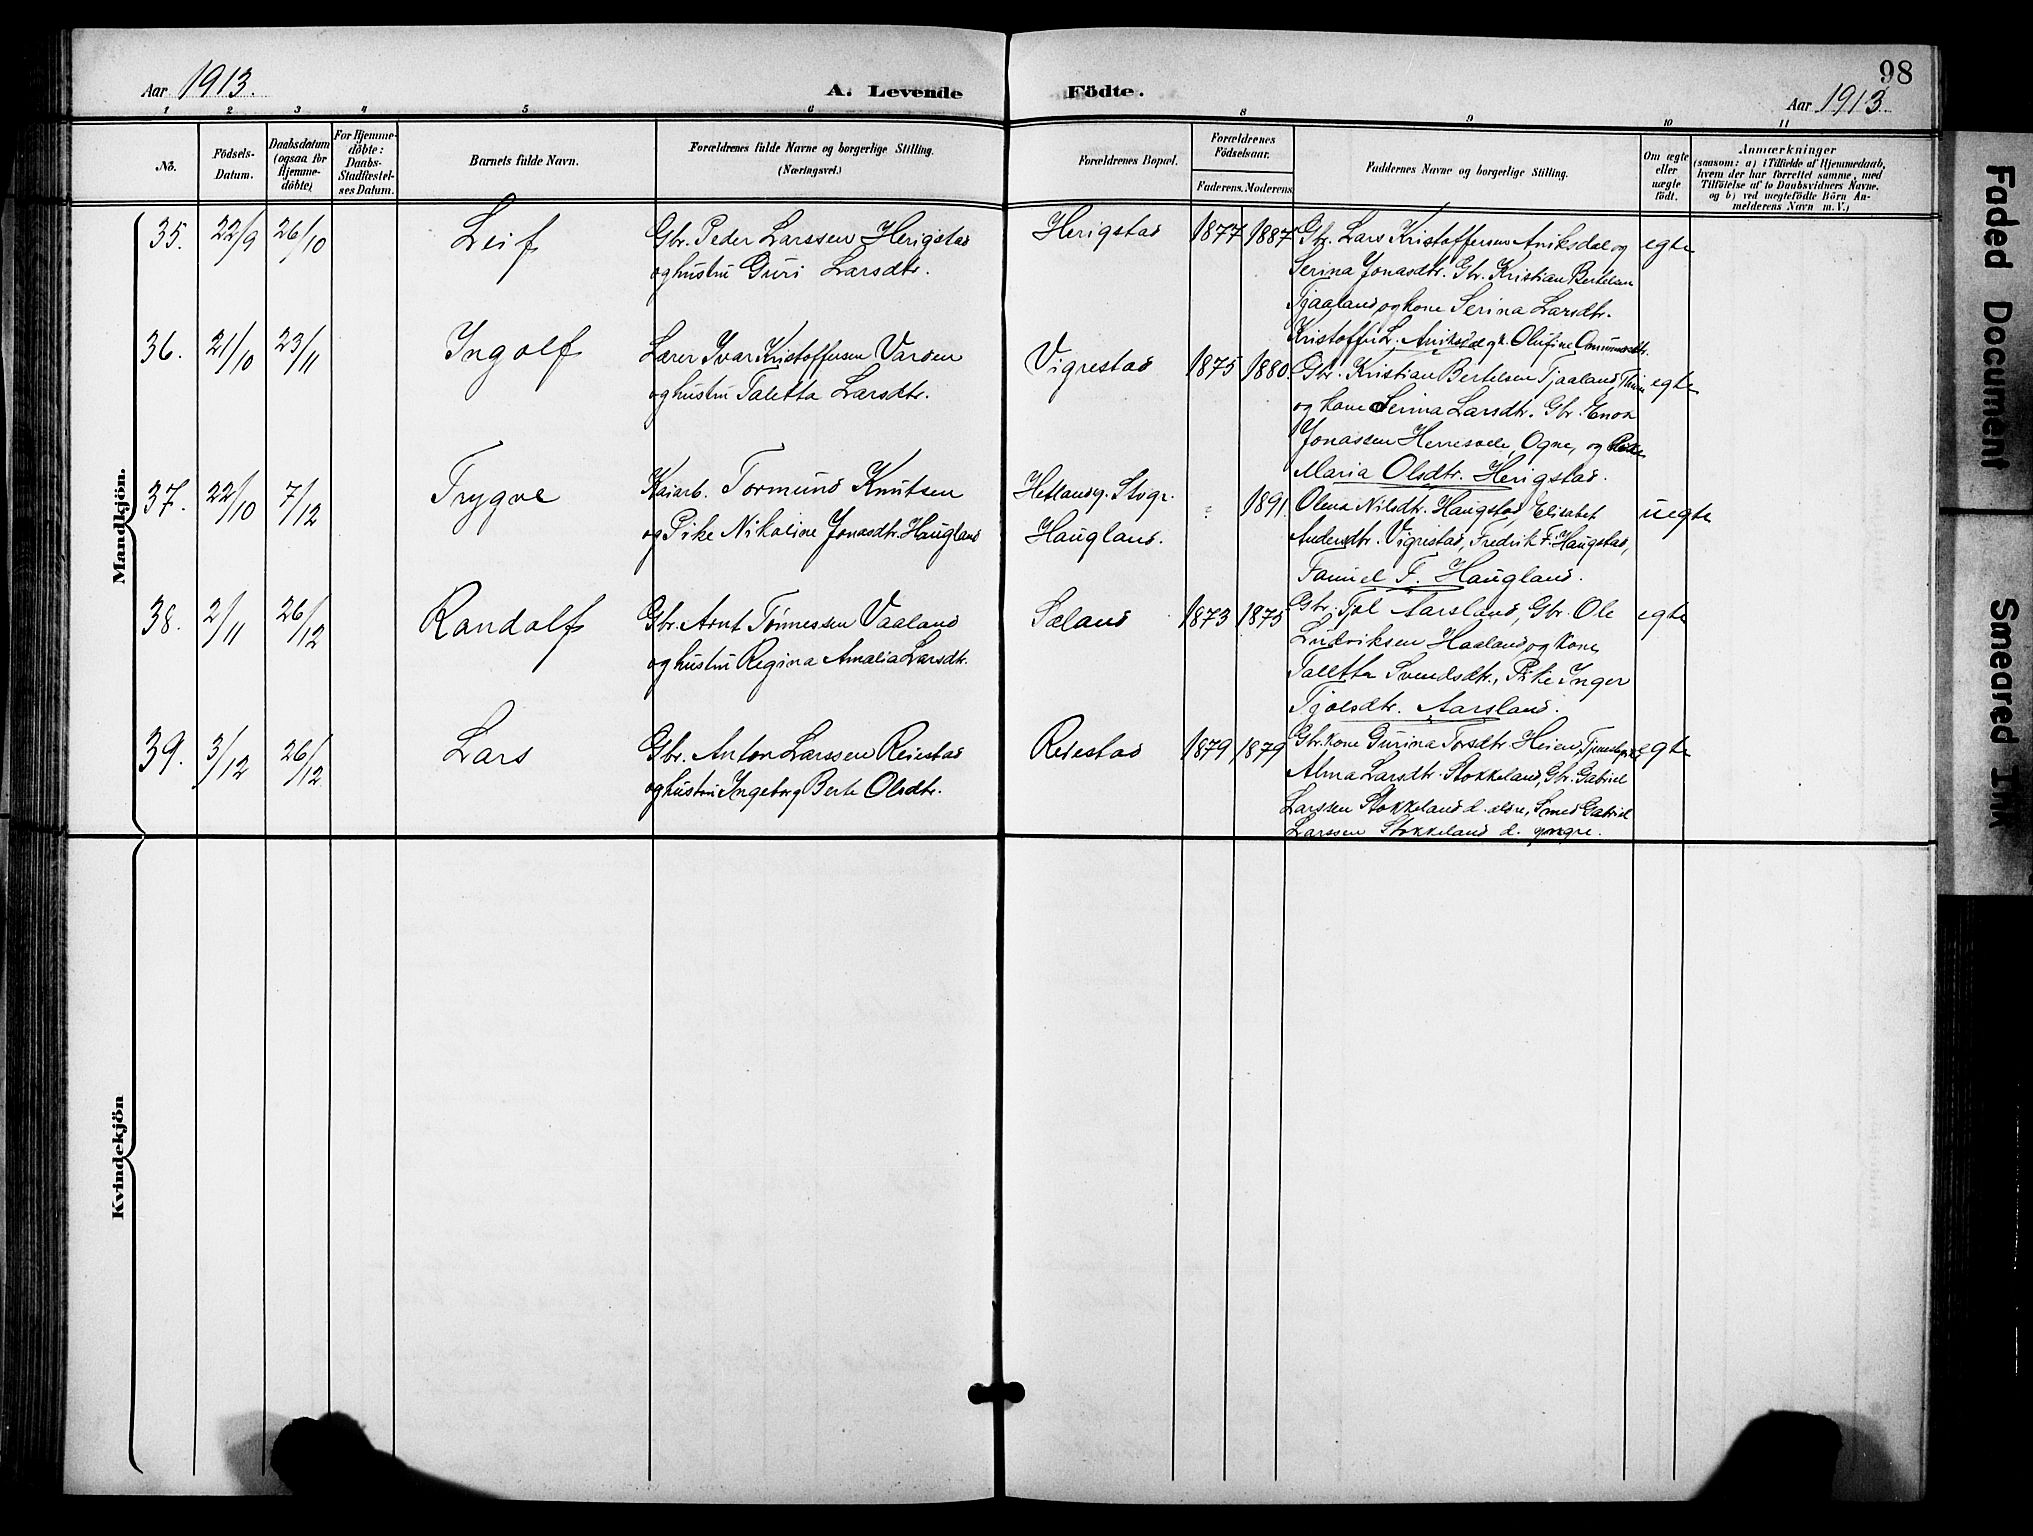 98
Aar 1913.
A. Levende Födte.
Aar 1913.
1 2 3 4 5 6 8 9 10 11
No.
Födsels-Datum.
Daabsdatum (ogsaa for Hjemme-döbte)
For Hjemme-döbte: Daabs-Stadfæstel-ses Datum.
Barnets fulde Navn.
Forældrenes fulde Navne og borgerlige Stilling.
(Næringsvei.)
Forældrenes Bopæl.
Forældrenes Födselsaar.
Faderens. Moderens.
Faddernes Navne og borgerlige Stilling.
Om ægte eller uægte födt.
Anmærkninger
(saasom: a) i Tilfælde af Hjemmedaab, hvem der har forrettet samme, med Tilföielse af to Daabsvidners Navne, og b) ved uægtefödte Börn An-melderens Navn m. V.)
Mandkjön.
35. 22/9 26/10 Leif
Gbr. Peder Larssen Herigstad
og hustru Guri Larsdtr.
Herigstad 1877 1887
Gbr. Lars Kristoffersen Aniksdal og
Serina Jonasdtr. Gbr. Kristian Bertelsen
Tjaaland og kone Serina Larsdtr.
Kristoffer L. Aniksdal Olufine
egte
36. 21/10 23/11 Ingolf
Lærer Ivar Kristoffersen Varden
og hustru Taletta Larsdtr.
Vigrestad 1875 1880.
Gbr. Kristian Bertelsen Tjaaland,
og kone Serina Larsdtr. Gbr. Enok
Jonassen Herresvele, Ogne, og Pike
Maria Olsdtr. Herigstad.
egte
37. 22/10 7/12 Trygve
Kaiarb. Tormund Knutsen
og Pike Nikoline Jonasdtr. Haugland
Hetlandsg. Stvgr.
Haugland.
1891.
Olena Nilsdtr. Haugstad, Elisabet
Andersdtr. Vigrestad, Fredrik F. Haugstad,
F. Haugland.
uegte
38. 2/11 26/12 Randolf
Gbr. Arnt Tønnessen Vaaland
og hustru Regina Amalia Larsdtr.
Sæland 1873 1875
Gbr. Tjøl Aarsland, Gbr. Ole
Ludviksen Haaland og kone
Taletta Svendsdtr., Pike Inger
Tjølsdtr. Aarsland.
egte
39. 3/12 26/12 Lars
Gbr. Anton Larssen Reiestad
og hustru Ingeborg Berte Olsdtr.
Reiestad 1879 1879
Gbr.kone Gurina Torsdtr. Heien,
Alma Larsdtr. Stokkeland, Gbr. Gabriel
Larssen Stokkeland d. eldre, Smed Gabriel
Larssen Stokkeland d. yngre.
egte
Kvindekjön
Faded Document
Smeared Ink